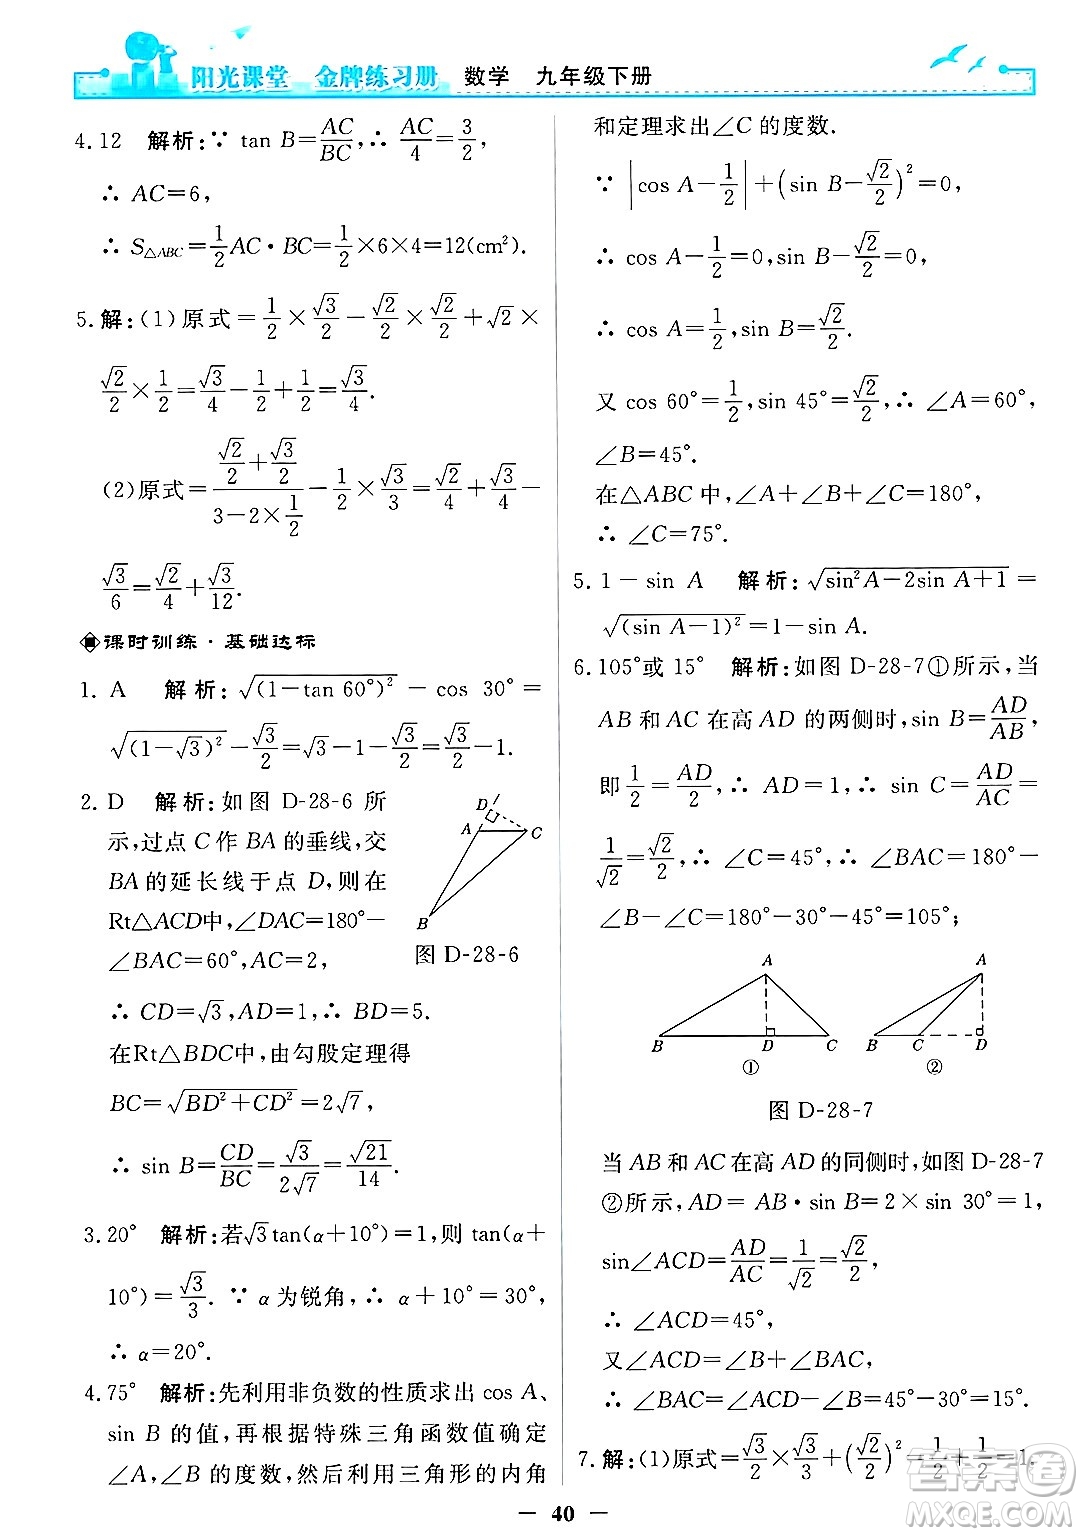 阳光课堂 金牌练习册 数学 九年级下册
4.12 解析:∵ tan B=AC/BC,∴ AC/4=3/2,
∴ AC=6,
∴ S△ABC=1/2AC·BC=1/2×6×4=12(cm²).
5.解:(1)原式=1/2×√3/2-√2/2×√2/2+√2×
√2/2×1/2=√3/4-1/2+1/2=√3/4.
(2)原式=(√2/2+√3/2)/(3-2×1/2)-1/2×√3/3=√2/4+√3/4-
√3/6=√2/4+√3/12.
课时训练·基础达标
1. A 解析:√(1-tan 60°)² - cos 30°=
√(1-√3)²-√3/2=√3-1-√3/2=√3/2-1.
2. D 解析:如图 D-28-6 所
示,过点 C 作 BA 的垂线,交
BA 的延长线于点 D,则在
Rt△ACD中,∠DAC=180°-
∠BAC=60°,AC=2,
D
A
C
B
图 D-28-6
∴ CD=√3,AD=1,∴ BD=5.
在Rt△BDC中,由勾股定理得
BC=√(BD²+CD²)=2√7,
∴ sin B=CD/BC=√3/2√7=√21/14.
3.20° 解析:若√3tan(α+10°)=1,则 tan(α+
10°)=√3/3. ∵ α 为锐角,∴ α+10°=30°,
∴ α=20°.
4.75° 解析:先利用非负数的性质求出 cos A、
sin B 的值,再根据特殊三角函数值确定
∠A,∠B 的度数,然后利用三角形的内角
和定理求出∠C 的度数.
∵ |cos A-1/2|+(sin B-√2/2)²=0,
∴ cos A-1/2=0,sin B-√2/2=0,
∴ cos A=1/2,sin B=√2/2.
又 cos 60°=1/2,sin 45°=√2/2,∴ ∠A=60°,
∠B=45°.
在△ABC 中,∠A+∠B+∠C=180°,
∴ ∠C=75°.
5. 1-sin A 解析:√(sin²A-2sin A+1)=
√(sin A-1)²=1-sin A.
6.105°或 15° 解析:如图 D-28-7①所示,当
AB 和 AC 在高 AD 的两侧时,sin B=AD/AB,
即1/2=AD/2,∴ AD=1,∴ sin C=AD/AC=
1/√2=√2/2,∴ ∠C=45°,∴ ∠BAC=180°-
∠B-∠C=180°-30°-45°=105°;
A A
B D C B C D
① ②
图 D-28-7
当 AB 和 AC 在高 AD 的同侧时,如图 D-28-7
②所示,AD=AB·sin B=2×sin 30°=1,
sin∠ACD=AD/AC=1/√2=√2/2,
∴ ∠ACD=45°,
又∠ACD=∠B+∠BAC,
∴ ∠BAC=∠ACD-∠B=15°.
7.解:(1)原式=√3/2×√3/3+(√2/2)²=1/2+1/2=1.
— 40 —
答案圈
MXQE.COM